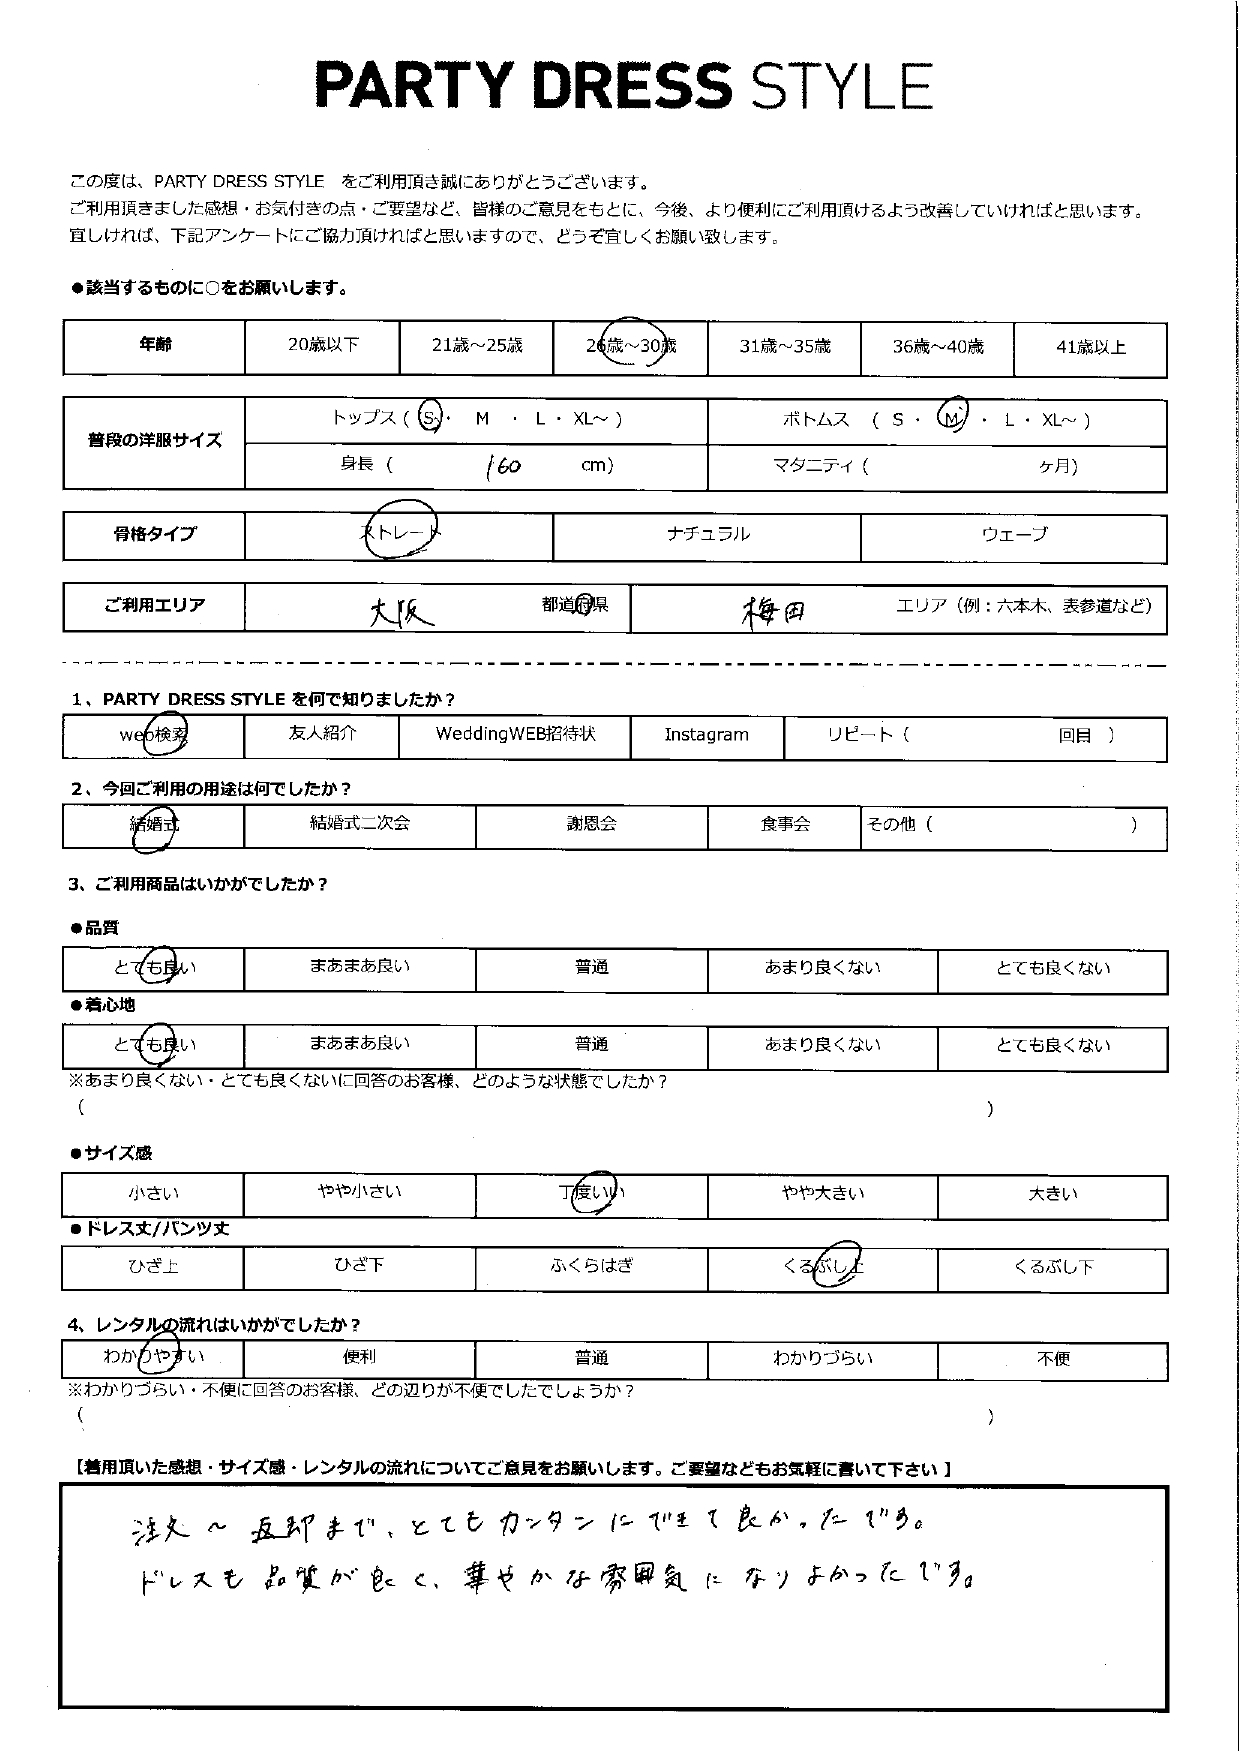 PARTY DRESS STYLE
この度は、PARTY DRESS STYLE　をご利用頂き誠にありがとうございます。
ご利用頂きました感想・お気付きの点・ご要望など、皆様のご意見をもとに、今後、より便利にご利用頂けるよう改善していければと思います。
宜しければ、下記アンケートにご協力頂ければと思いますので、どうぞ宜しくお願い致します。
●該当するものに○をお願いします。
年齢 20歳以下 21歳～25歳 26歳～30歳 31歳～35歳 36歳～40歳 41歳以上
普段の洋服サイズ トップス ( S ・ M ・ L ・ XL～ ) ボトムス ( S ・ M ・ L ・ XL～ )
身長 ( 160 cm) マタニティ ( ケ月)
骨格タイプ ストレート ナチュラル ウェーブ
ご利用エリア 大阪 都道府県 梅田 エリア（例：六本木、表参道など）
1、PARTY DRESS STYLE を何で知りましたか？
web検索 友人紹介 WeddingWEB招待状 Instagram リピート ( 回目 )
2、今回ご利用の用途は何でしたか？
結婚式 結婚式二次会 謝恩会 食事会 その他 ( )
3、ご利用商品はいかがでしたか？
●品質
とても良い まあまあ良い 普通 あまり良くない とても良くない
●着心地
とても良い まあまあ良い 普通 あまり良くない とても良くない
※あまり良くない・とても良くないに回答のお客様、どのような状態でしたか？
( )
●サイズ感
小さい やや小さい 丁度いい やや大きい 大きい
●ドレス丈/パンツ丈
ひざ上 ひざ下 ふくらはぎ くるぶし上 くるぶし下
4、レンタルの流れはいかがでしたか？
わかりやすい 便利 普通 わかりづらい 不便
※わかりづらい・不便に回答のお客様、どの辺りが不便でしたでしょうか？
( )
【着用頂いた感想・サイズ感・レンタルの流れについてご意見をお願いします。ご要望などもお気軽に書いて下さい】
注文～返却まで、とてもカンタンにできて良かったです。
ドレスも品質が良く、華やかな雰囲気になりよかったです。